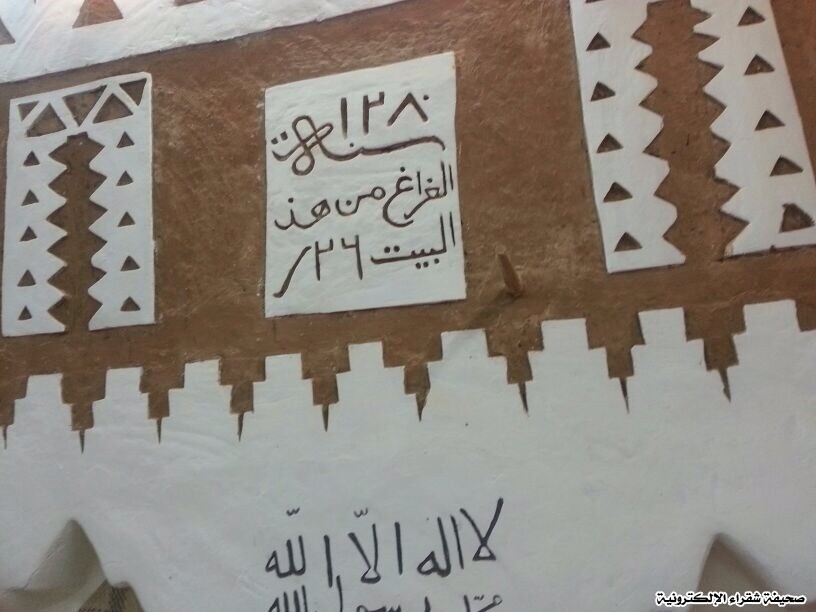 ١٢٨٠
سنة
الفراغ من هذ
البيت ٢٦/
لا اله الا الله
محمد رسول الله
صحيفة شقراء الإلكترونية